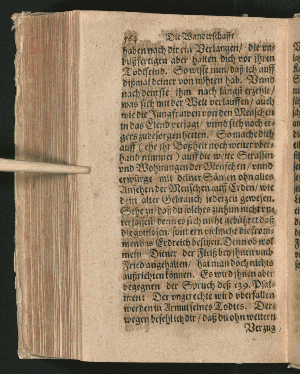 Die Wanderschafft
haben nach dir ein Verlangen / die vn-
bußfertigen aber halten dich vor ihren
Todfeind. So wisse nun / daß ich auff
dißmal deiner von nöhten hab. Vnnd
nach dem sie ihm nach längs erzehlt /
was sich mit der Welt verlauffen / auch
wie die Jungfrawen von den Menschen
in das Elend verjagt / vnnd sich noch er-
gers zubesorgen hetten. So mache dich
auff ( ehe ihr Boßheit noch weiter vber-
hand nimmet ) auff die weite Strassen
vnd Wohnungen der Menschen / vnnd
erwürge mit deiner Sänen ohn alles
Ansehen der Menschen auff Erden / wie
dein alter Gebrauch jederzeit gewesen.
Sihe zu / daß du solches
daß
die gottlosen / sondern vielmehr die from-
men das Erdreich besitzen. Dann ob wol
mein Diener der Fleiß bey ihnen vmb
Fried angehalten / hat man doch nichts
außrichten können. Es wird ihnen aber
begegnen der Spruch deß 139. Psal-
men: Der vngerechte wird vberfallen
werden in Armut seines Todtes. Der-
wegen befehl ich dir / daß du ohn weitern
Verzug